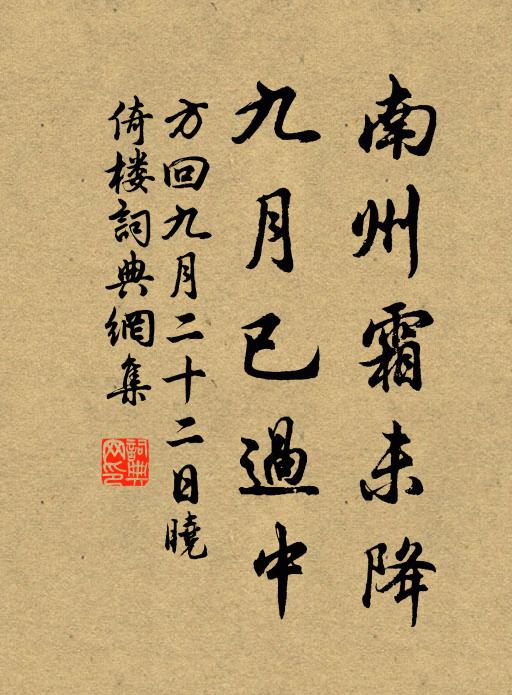 南州霜未降
九月已過中
方回九月二十二日曉
倚楼詞典網集
詞典
网印